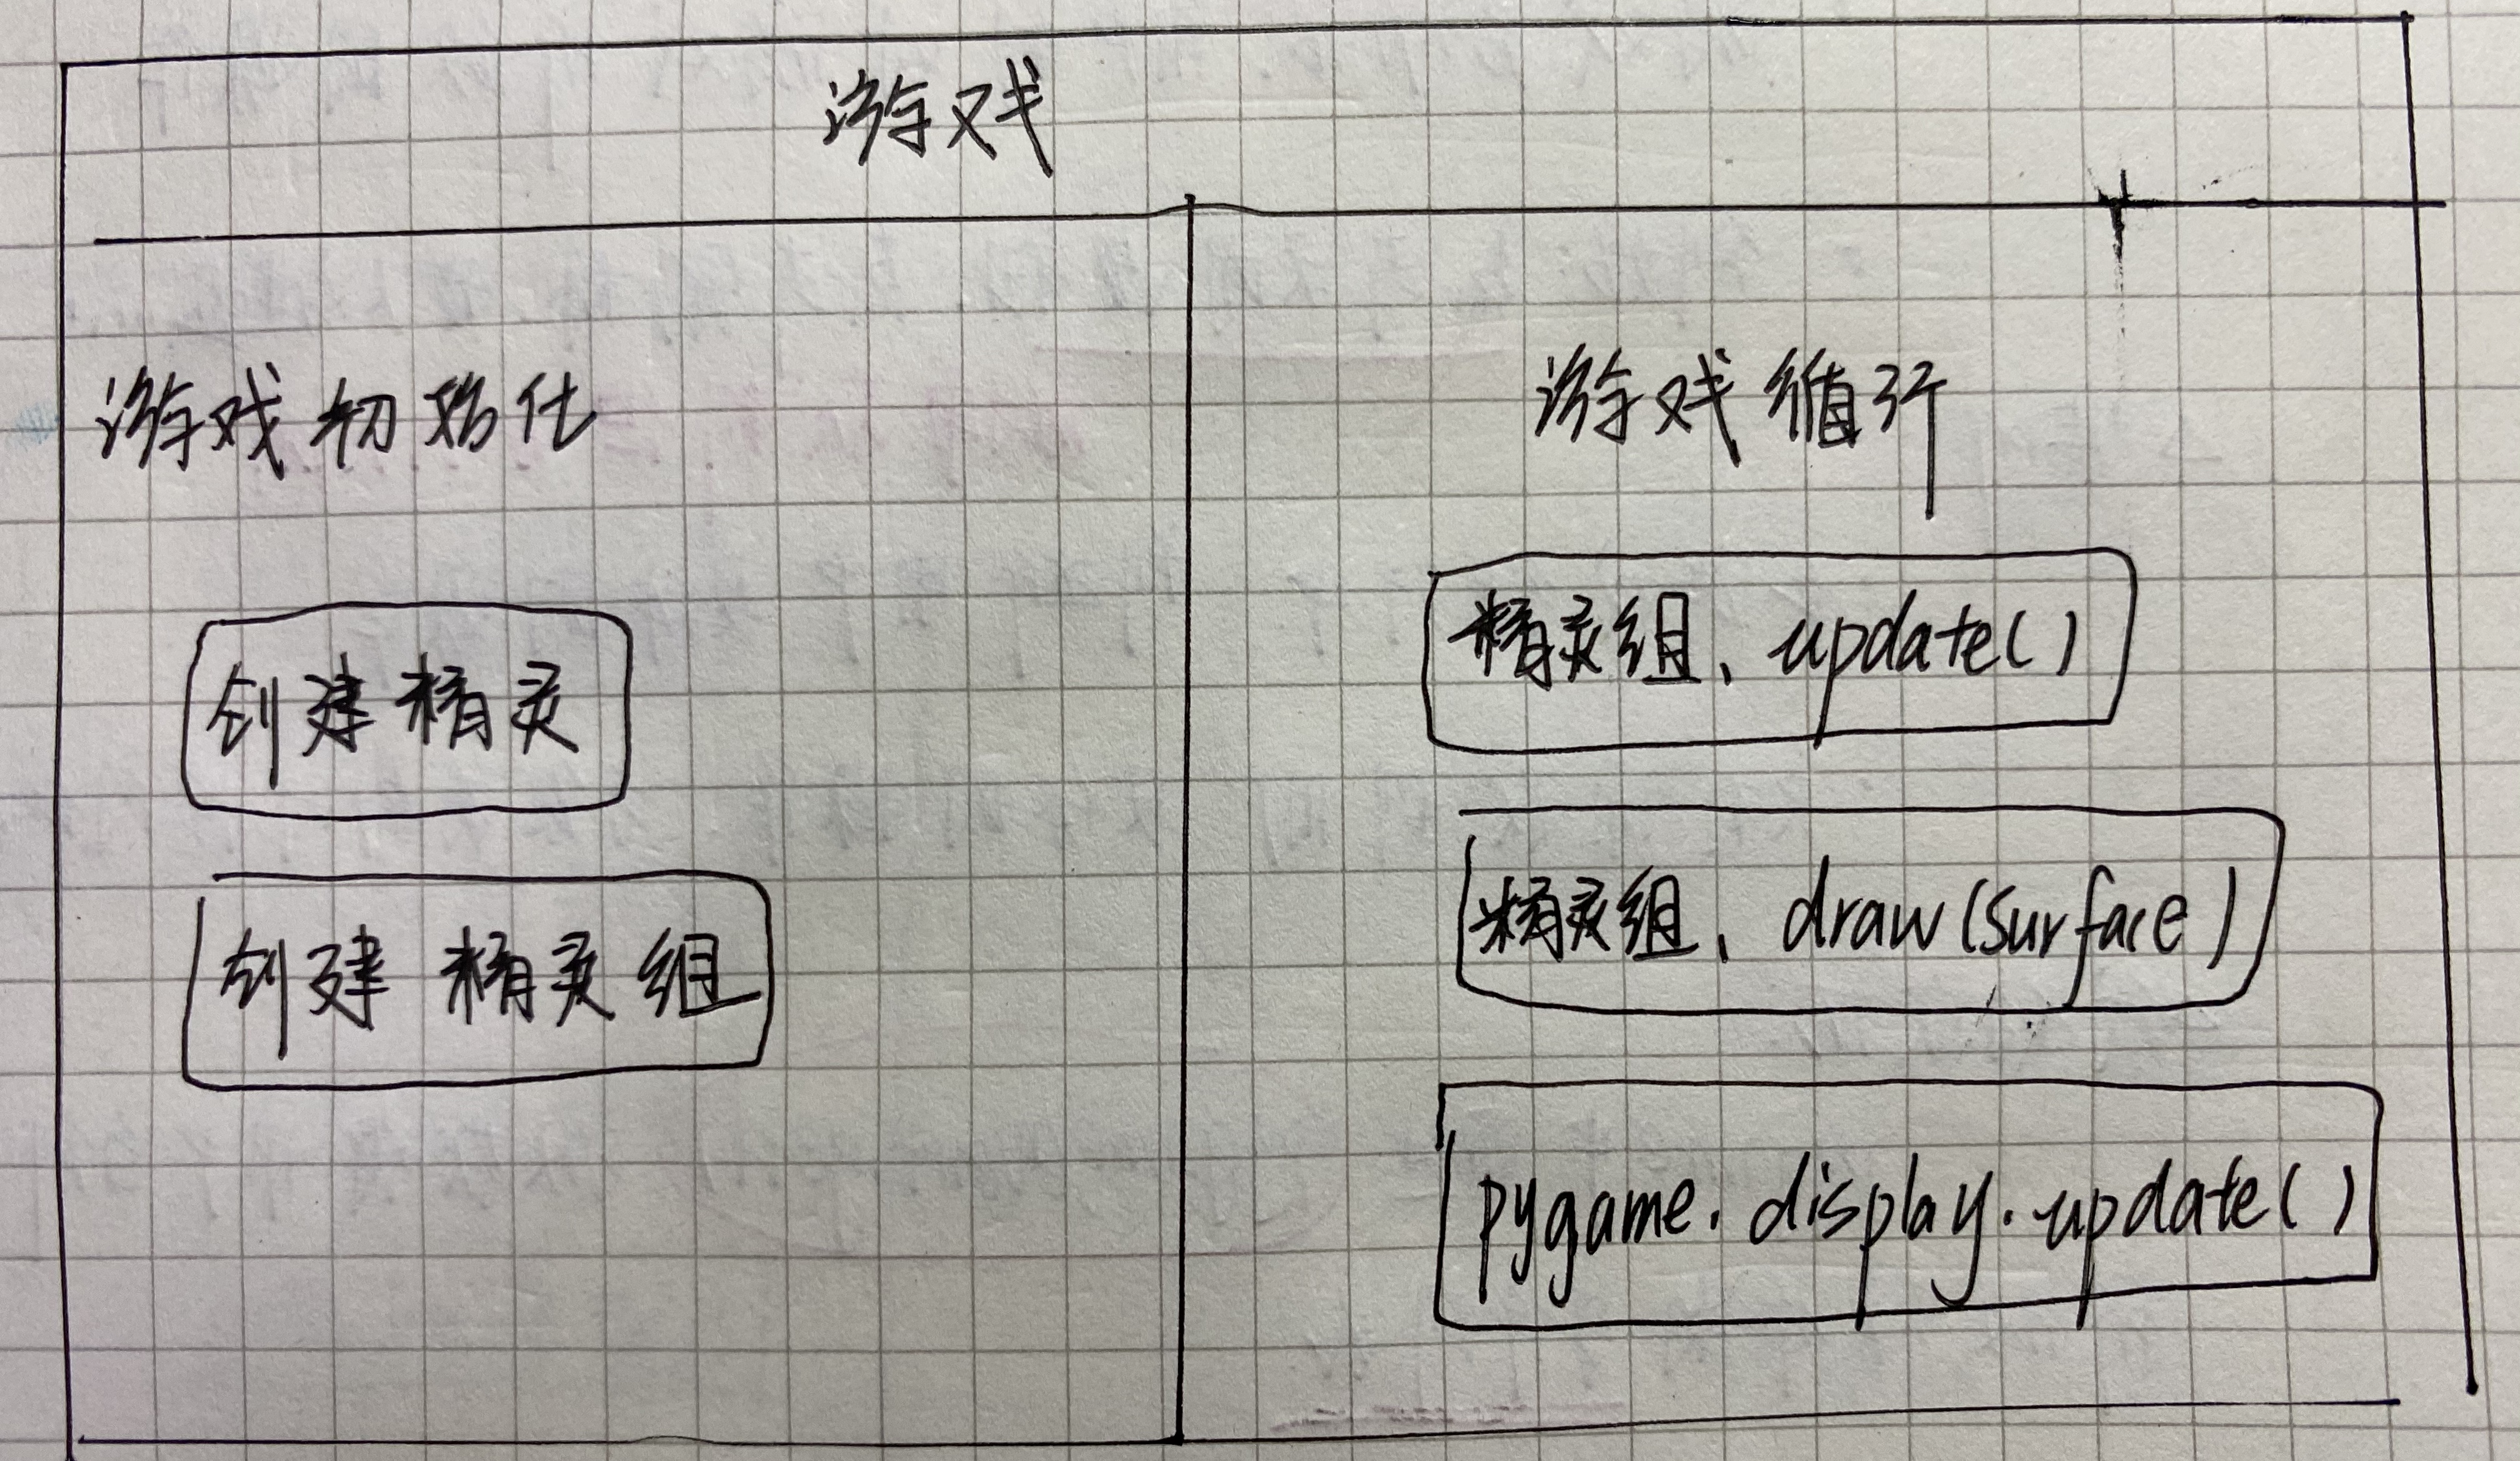 游戏
游戏初始化
创建精灵
创建精灵组
游戏循行
精灵组、update()
精灵组、draw(surface)
pygame.display.update()